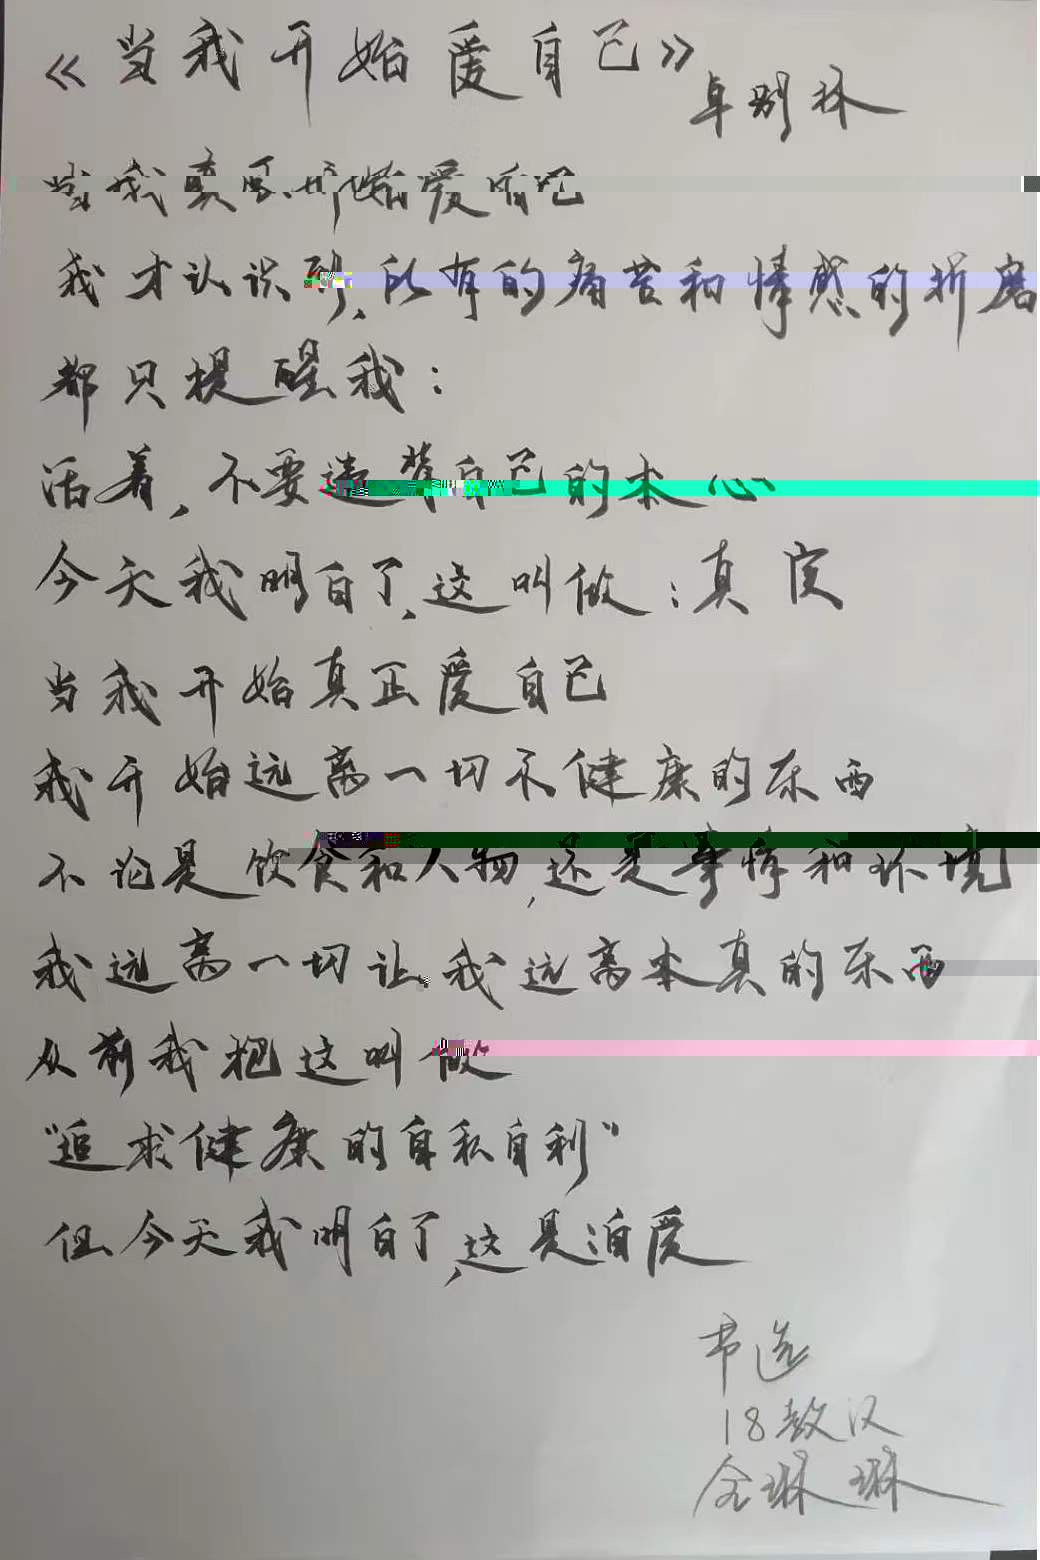 《当我开始爱自己》
卓别林
当我真正开始爱自己
我才认识到,所有的痛苦和情感的折磨
都只提醒我:
活着,不要违背自己的本心
今天我明白了,这叫做:真实
当我开始真正爱自己
我开始远离一切不健康的东西
不论是饮食和人物,还是事情和环境
我远离一切让我远离本真的东西
从前我把这叫做
“追求健康的自私自利”
但今天我明白了,这是自爱
节选
18数汉
金琳琳